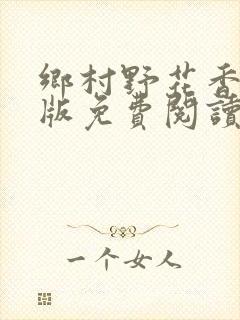 鄉村野花香
版免費閱讀
一个女人